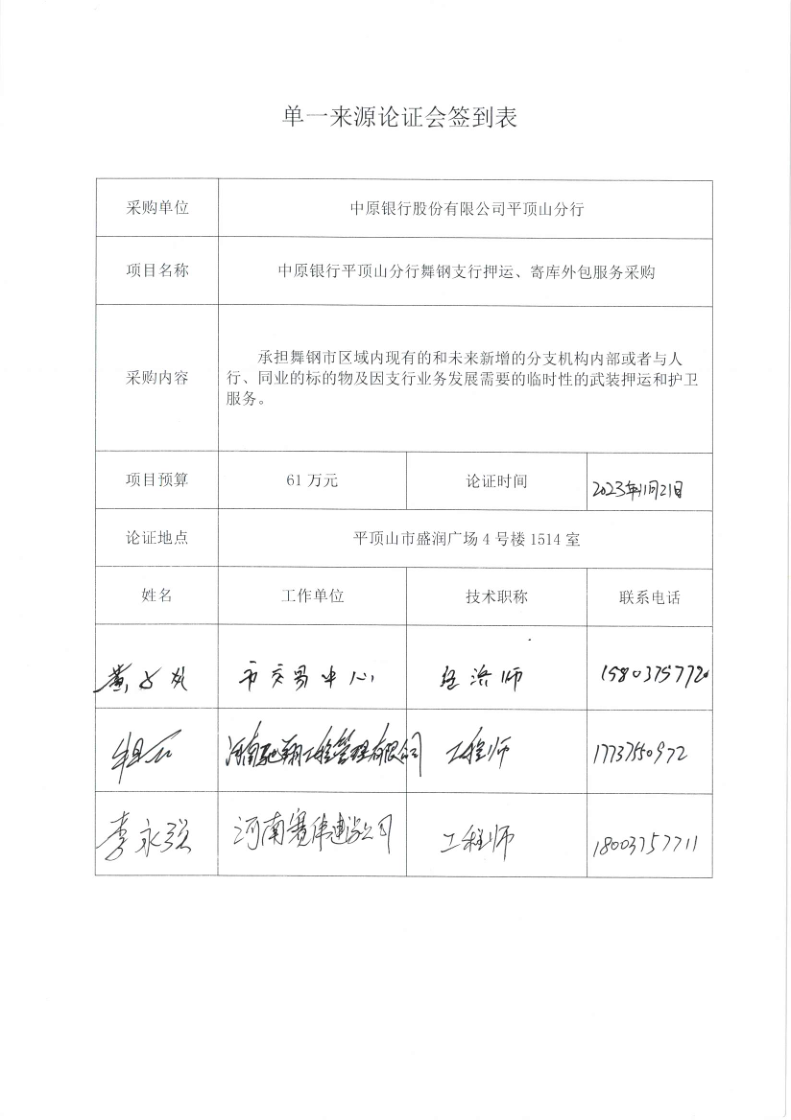 单一来源论证会签到表
采购单位 中原银行股份有限公司平顶山分行
项目名称 中原银行平顶山分行舞钢支行押运、寄库外包服务采购
采购内容
承担舞钢市区域内现有的和未来新增的分支机构内部或者与人
行、同业的标的物及因支行业务发展需要的临时性的武装押运和护卫
服务。
项目预算 61 万元 论证时间 2023年11月21日
论证地点 平顶山市盛润广场 4 号楼 1514 室
姓名 工作单位 技术职称 联系电话
市交易中心 经济师 15803757720
河南驰翔工程管理有限公司 工程师 17737550972
李永强 河南 公司 工程师 18003757711